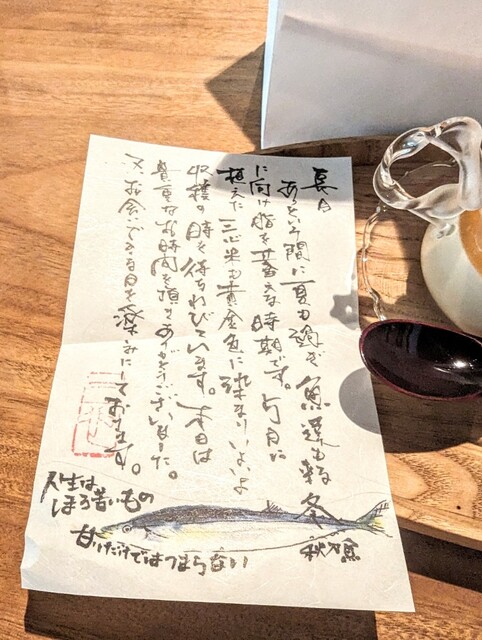 あっという間に夏も過ぎ 魚達も寒
に向け脂を蓄える時期です。5月に
植えた 三心米も黄金色に染まり いよいよ
収穫の時を待ちわびています。本日は
貴重なお時間を頂きありがとうございました。
又お会いできる日を楽しみにしております。
人生は
ほろ苦いもの
甘いだけではつまらない
秋刀魚